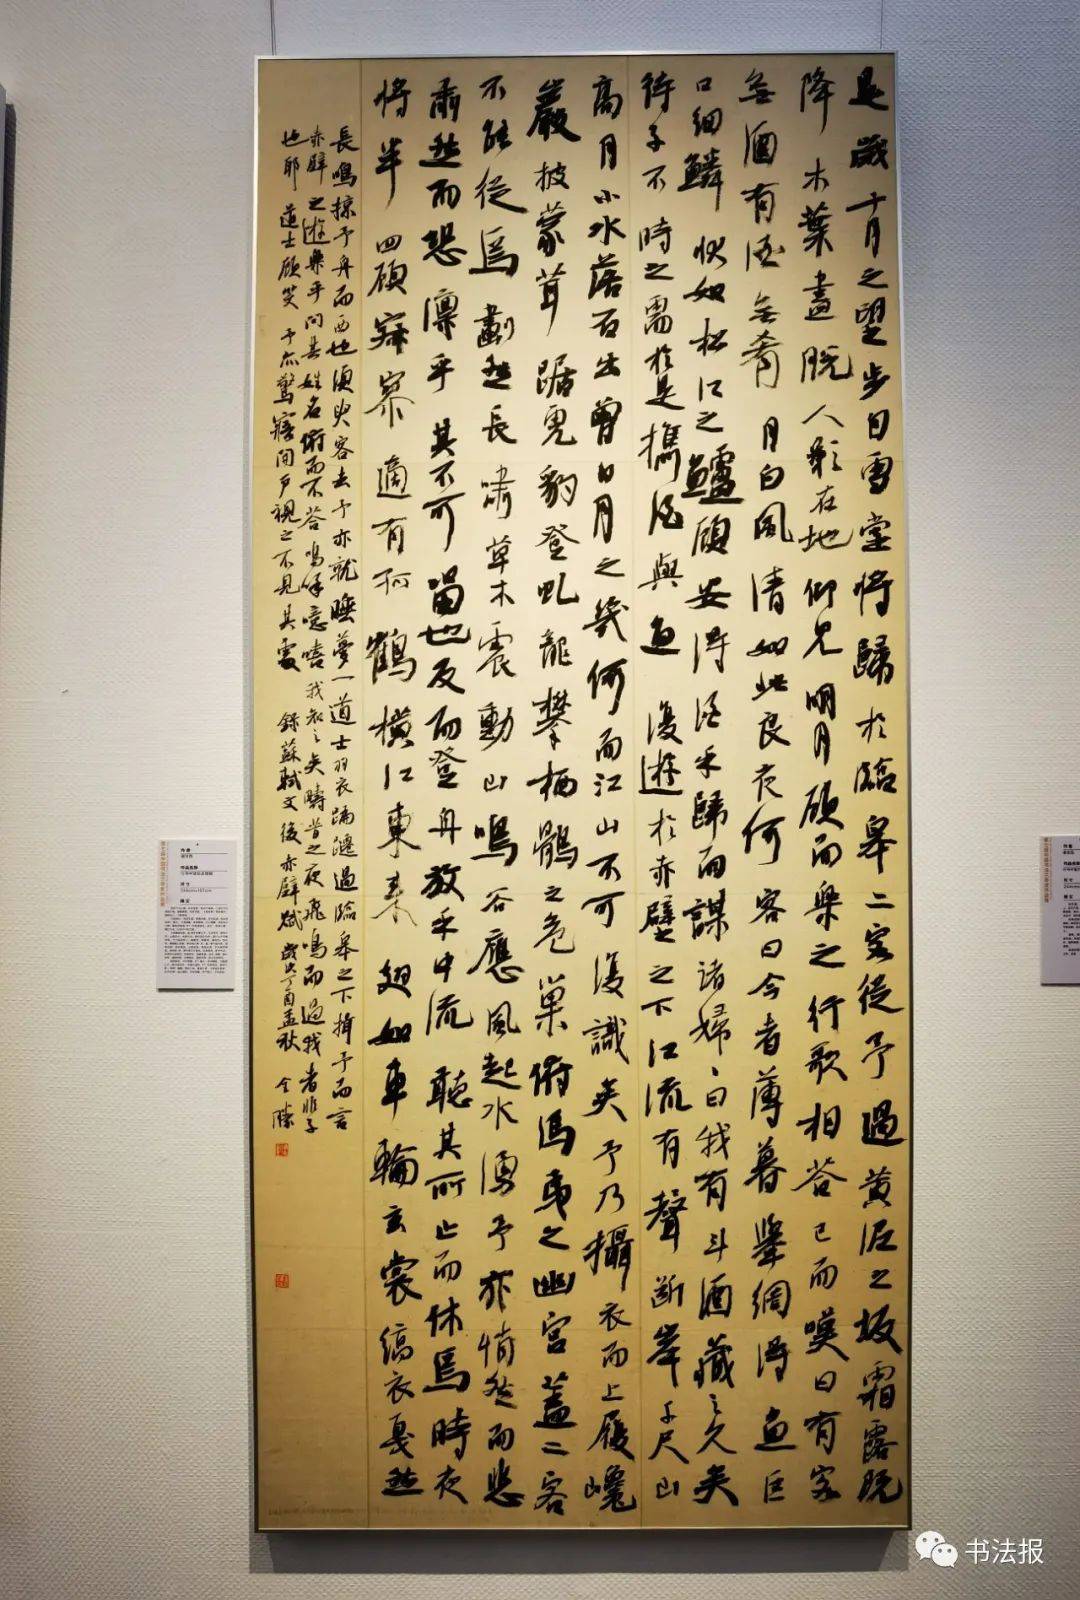 是歲十月之望步自雪堂將歸於臨皋二客從予過黃泥之坂霜露既
降木葉盡脫人影在地仰見明月顧而樂之行歌相答已而嘆曰有客
無酒有酒無肴月白風清如此良夜何客曰今者薄暮舉網得魚巨
口細鱗狀如松江之鱸顧安得酒乎歸而謀諸婦婦曰我有斗酒藏之久矣
待子不時之需於是攜酒與魚復遊於赤壁之下江流有聲斷岸千尺山
高月小水落石出曾日月之幾何而江山不可復識矣予乃攝衣而上履巉
巖披蒙茸踞虎豹登虬龍攀栖鶻之危巢俯馮夷之幽宮蓋二客
不能從焉劃然長嘯草木震動山鳴谷應風起水湧予亦悄然而悲
肅然而恐凜乎其不可留也反而登舟放乎中流聽其所止而休焉時夜
將半四顧寂寥適有孤鶴橫江東來翅如車輪玄裳縞衣戛然
長鳴掠予舟而西也須臾客去予亦就睡夢一道士羽衣蹁躚過臨皋之下揖予而言
赤壁之遊樂乎問其姓名俯而不答嗚呼噫嘻我知之矣疇昔之夜飛鳴而過我者非子
也耶道士顧笑予亦驚寤開戶視之不見其處 錄蘇軾文後赤壁賦 歲次丁酉孟秋
作者
作品名称
尺寸
释文
作者
尺寸
释文
书法报